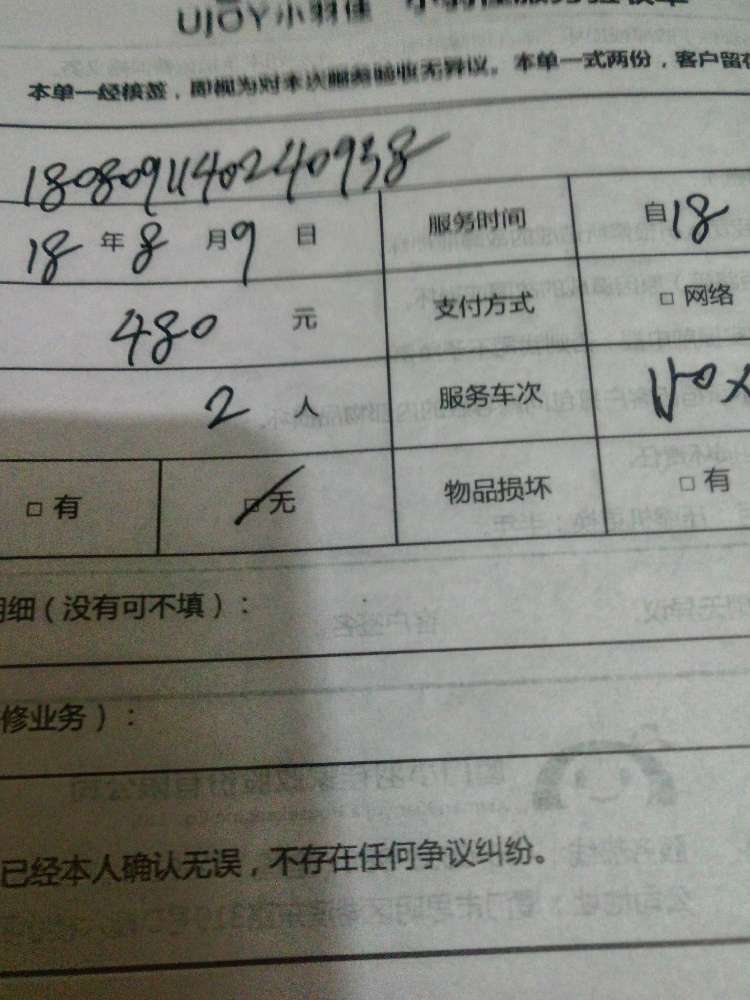 UJOY小羽佳 小羽佳服务验收单
本单一经核签，即视为对本次服务验收无异议。本单一式两份，客户留存
1808091140240938
18 年 8 月 9 日 服务时间 自 18
480 元 支付方式 □ 网络
2 人 服务车次
□ 有 □ 无 物品损坏 □ 有
明细（没有可不填）：
修业务）：
已经本人确认无误，不存在任何争议纠纷。